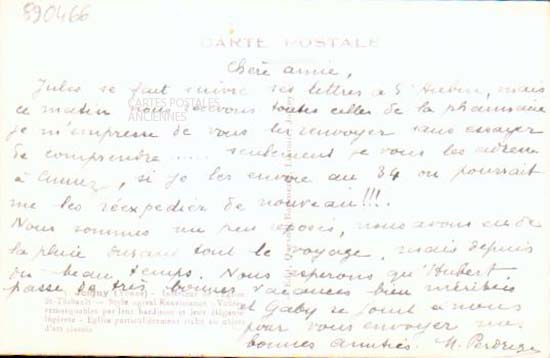 890466
CARTE POSTALE
Chère amie,
Jules se fait suivre ses lettres à St Aubin, mais
ce matin nous recevons toutes celles de la pharmacie
CARTES POSTALES
ANCIENNES
je m'empresse de vous les renvoyer sans essayer
de comprendre ..... seulement je vous les adresse
à , si je les envoie au 34 on pourrait
me les réexpédier de nouveau!!!.
Nous sommes un peu reposés, nous avons eu de
la pluie durant tout le voyage, mais depuis
du beau temps. Nous espérons qu'Hubert
passe de très bonnes vacances bien méritées
et Gaby se joint à nous
pour vous envoyer nos
bonnes amitiés. M.
Joigny (Yonne) - Intérieur de l'Eglise
St-Thibault - Style ogival Renaissance - Voûtes
remarquables par leur hardiesse et leur élégante
légèreté - Eglise particulièrement riche en objets
d'art classés